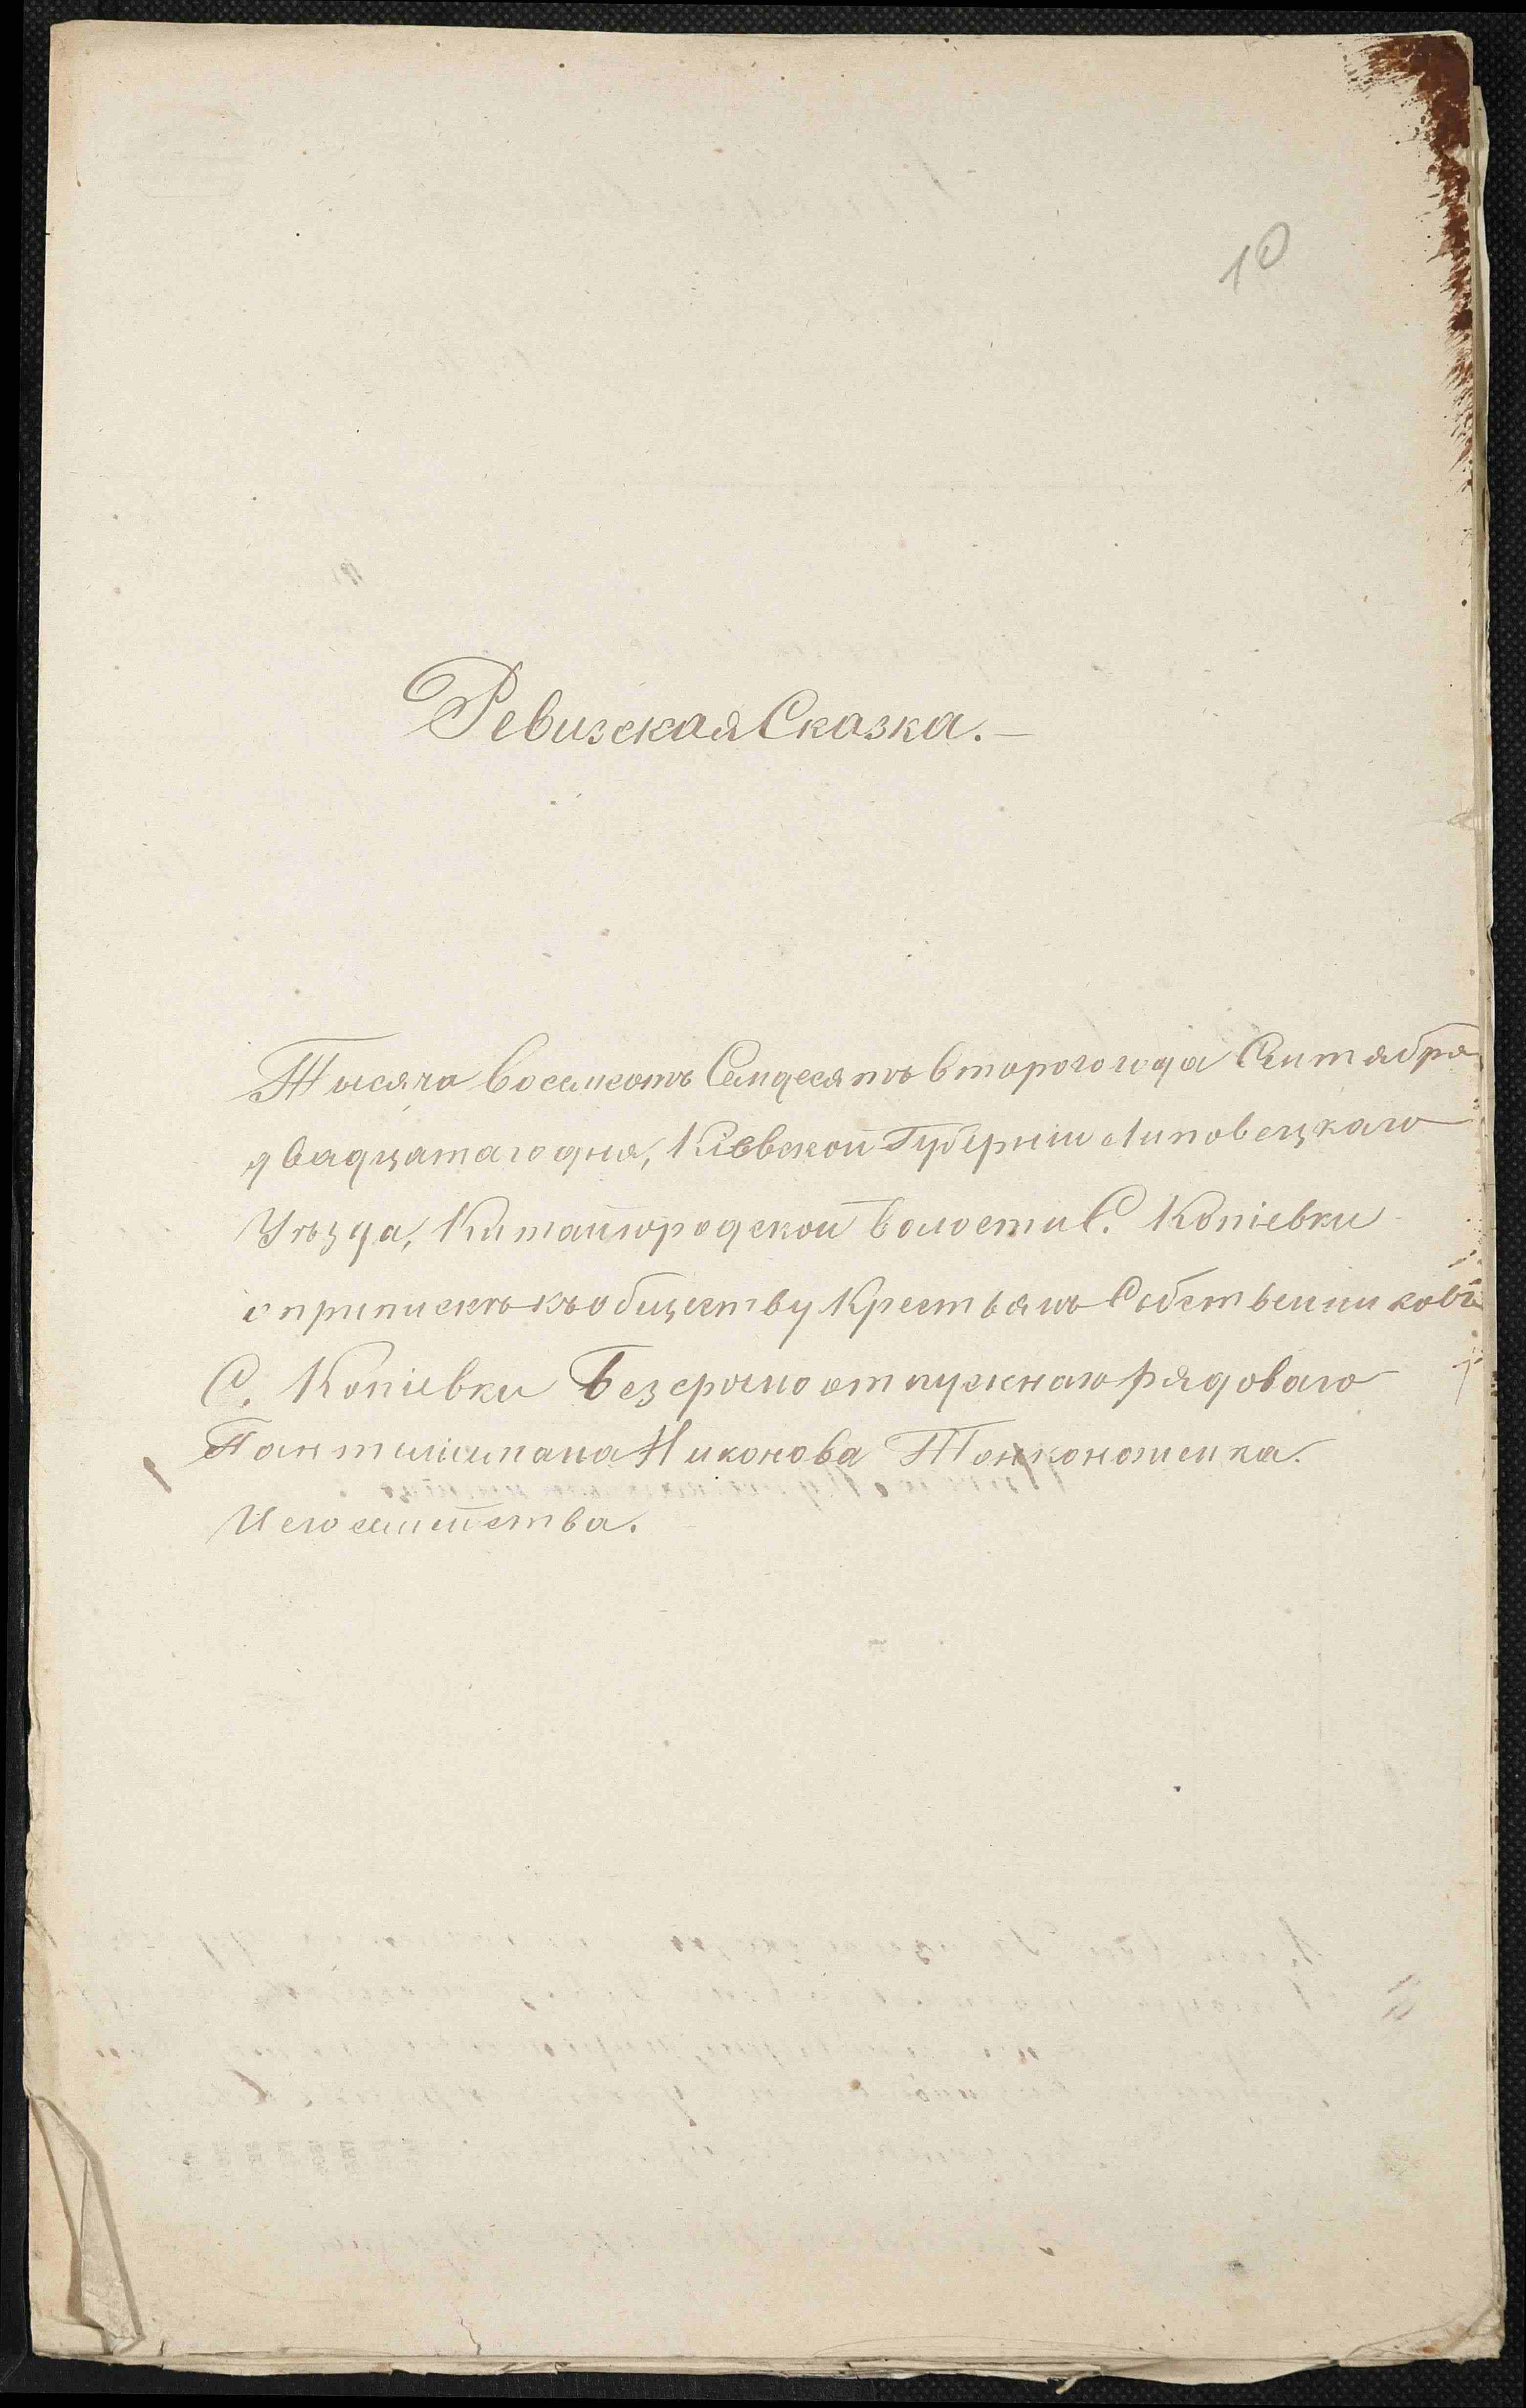 10
Ревизская Сказка.—
Тысяча восемсотъ Семдесятъ второго года Сентября
двадцатаго дня, Кіевской Губерніи Липовецкаго
Уѣзда, Китайгородской волости С. Копіевки
о припискѣ къ обществу Крестьянъ Собственниковъ
С. Копіевки Безсрочно отпускнаго рядоваго
Пантилимана Никонова Тонконоженка.
И его семейства.